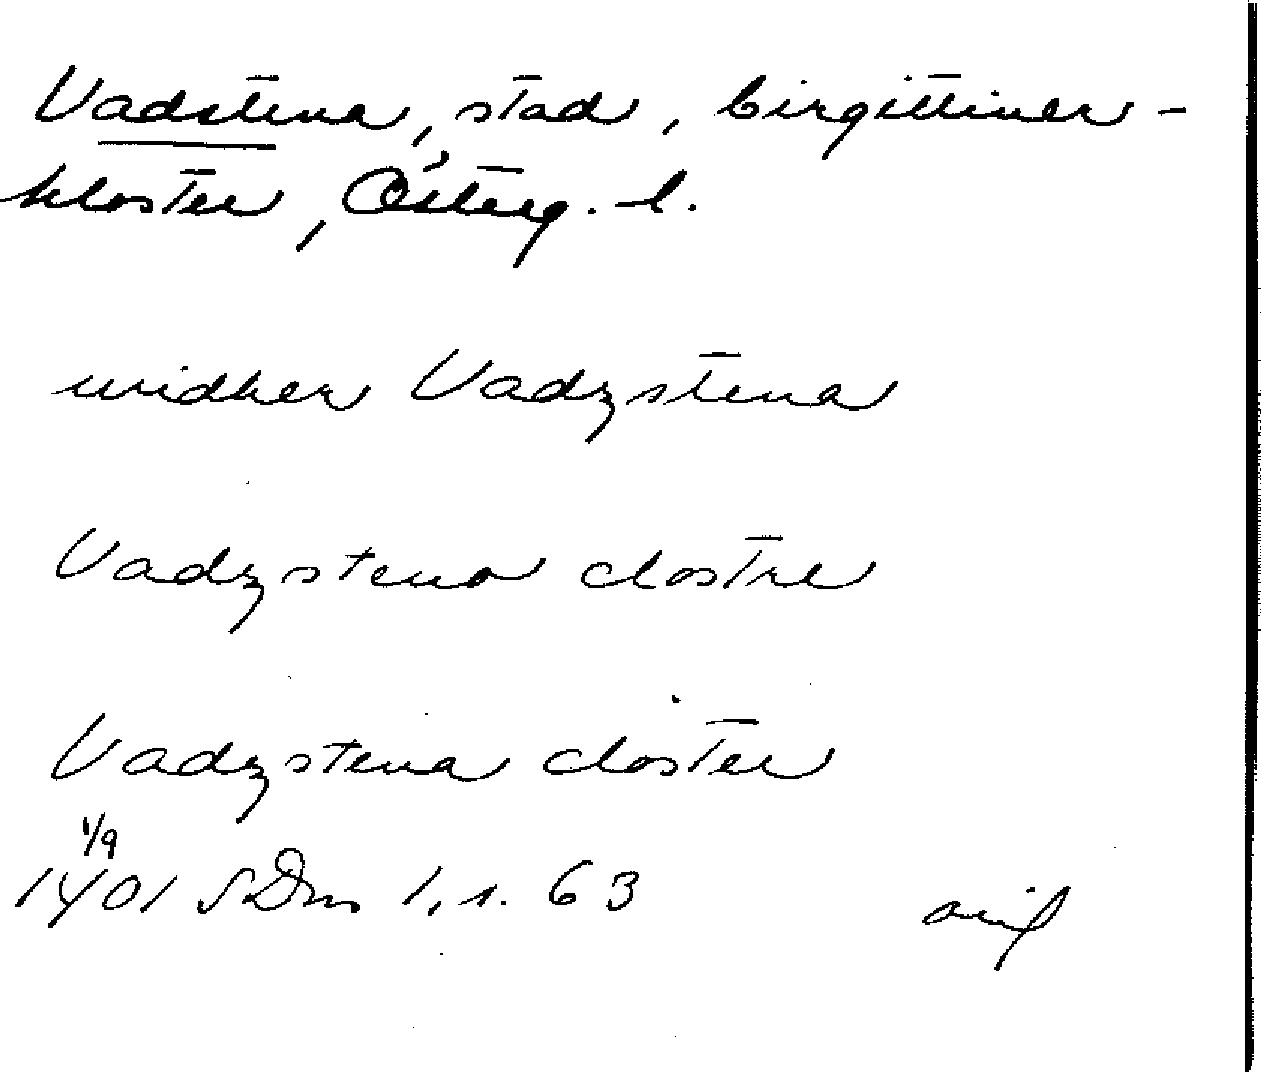 Vadstena, stad, birgittiner-
kloster, Österg. l.
widher Vadzstena
Vadzstena clostre
Vadzstena closter
1/9
1401 SDns 1, s. 63